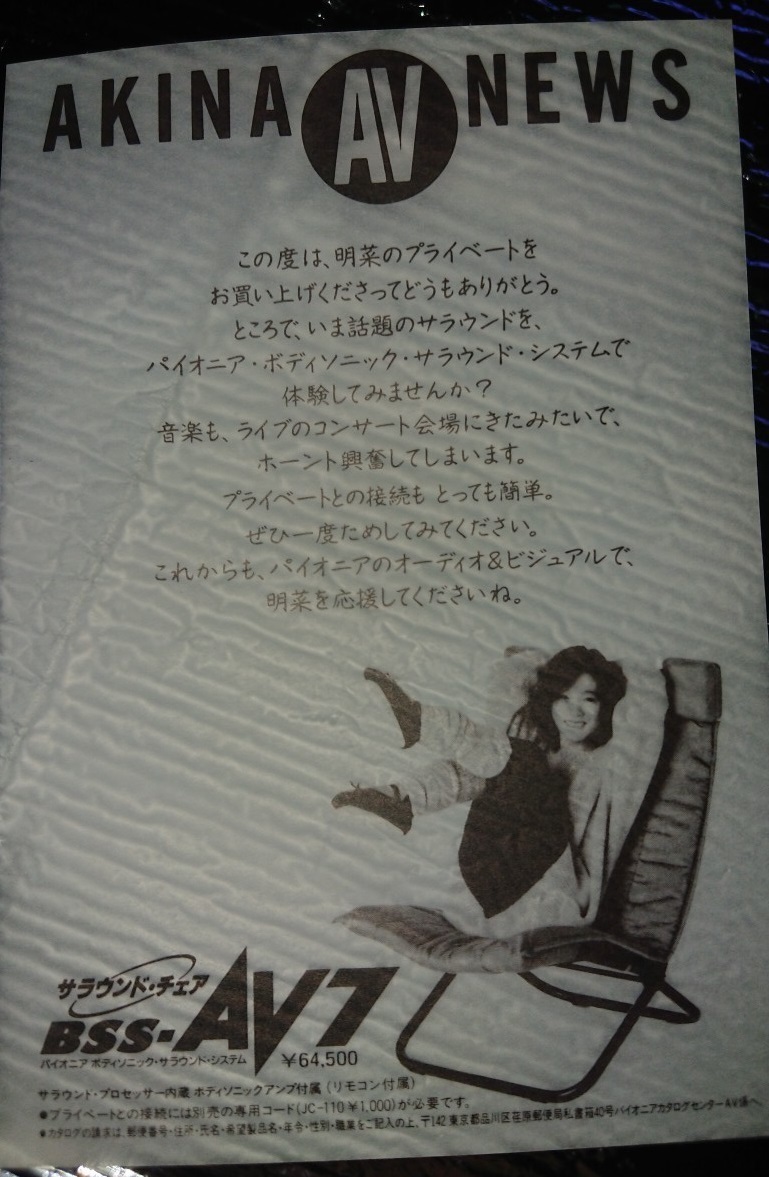 AKINA AV NEWS
この度は、明菜のプライベートを
お買い上げくださってどうもありがとう。
ところで、いま話題のサラウンドを、
パイオニア・ボディソニック・サラウンド・システムで
体験してみませんか?
音楽も、ライブのコンサート会場にきたみたいで、
ホーント興奮してしまいます。
プライベートとの接続も とっても簡単。
ぜひ一度ためしてみてください。
これからも、パイオニアのオーディオ&ビジュアルで、
明菜を応援してくださいね。
サラウンド・チェア
BSS-AV7
パイオニア ボディソニック・サラウンド・システム ¥64,500
サラウンド・プロセッサー内蔵 ボディソニックアンプ付属(リモコン付属)
●プライベートとの接続には別売の専用コード(JC-110 ¥1,000)が必要です。
●カタログの請求は、郵便番号・住所・氏名・希望製品名・年令・性別・職業をご記入の上、〒142 東京都品川区荏原郵便局私書箱40号パイオニアカタログセンターAV係へ